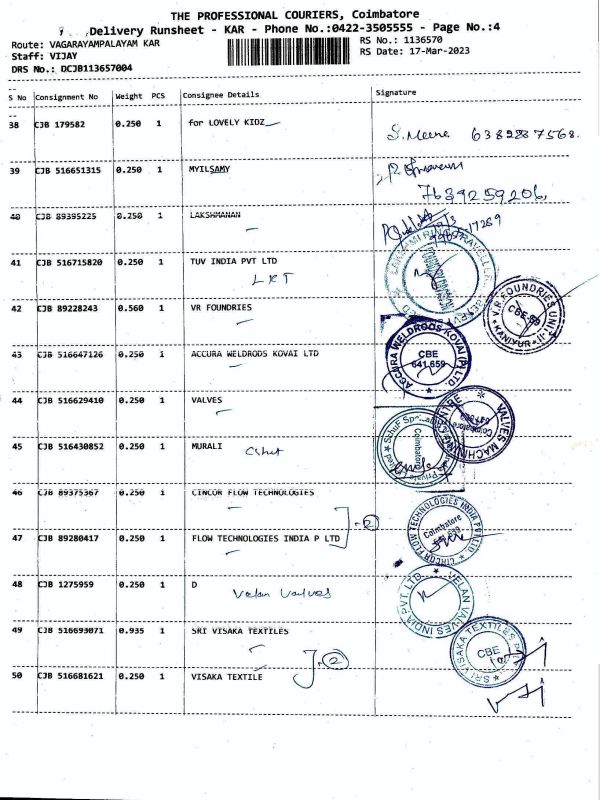 THE PROFESSIONAL COURIERS, Coimbatore
Delivery Runsheet - KAR - Phone No.:0422-3505555 - Page No.:4
Route: VAGARAYAMPALAYAM KAR
RS No.: 1136570
Staff: VIJAY
RS Date: 17-Mar-2023
DRS No.: DCJB113657004
S No Consignment No Weight PCS Consignee Details Signature
38 CJB 179582 0.250 1 for LOVELY KIDZ
S. Meena 6382887568.
39 CJB 516651315 0.250 1 MYILSAMY
7639259206
40 CJB 89395225 0.250 1 LAKSHMANAN
41 CJB 516715820 0.250 1 TUV INDIA PVT LTD
42 CJB 89228243 0.560 1 VR FOUNDRIES
V.R.FOUNDRIES UNIT
CBE-59
43 CJB 516647126 0.250 1 ACCURA WELDRODS KOVAI LTD
ACCURA WELDRODS KOVAI (P) LTD.
CBE
641 659
44 CJB 516629410 0.250 1 VALVES
VALVES
Coimbatore
45 CJB 516430852 0.250 1 MURALI
Coimbatore
46 CJB 89375367 0.250 1 CINCOR FLOW TECHNOLOGIES
2
47 CJB 89280417 0.250 1 FLOW TECHNOLOGIES INDIA P LTD
CIRCOR FLOW TECHNOLOGIES INDIA PVT LTD
Coimbatore
48 CJB 1275959 0.250 1 D
Velan Valves
VELAN VALVES INDIA PVT. LTD.
49 CJB 516693071 0.935 1 SRI VISAKA TEXTILES
SRI VISAKA TEXTILES
CBE
2
50 CJB 516681621 0.250 1 VISAKA TEXTILE